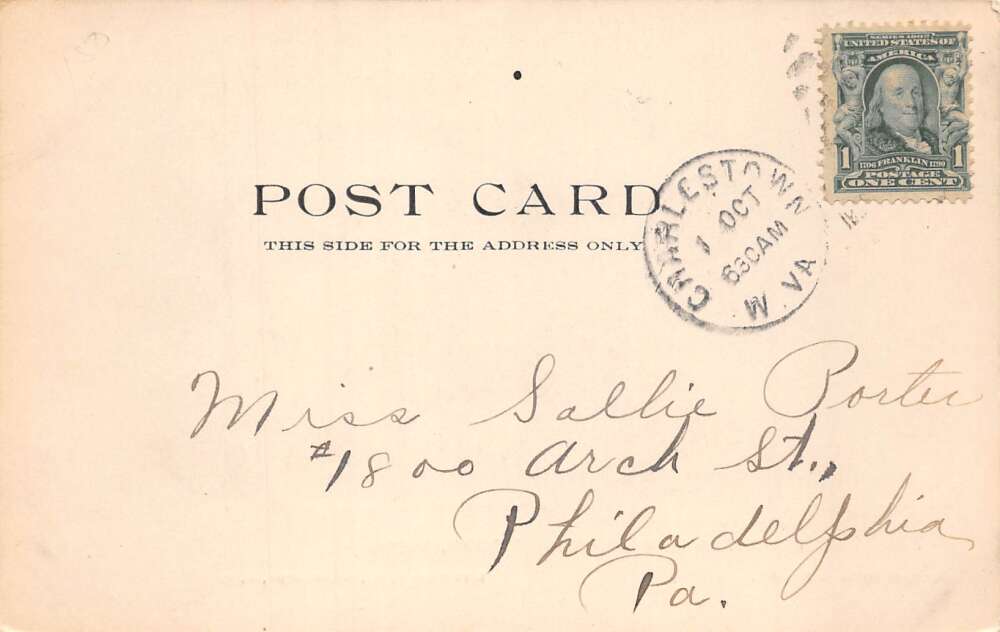 SERIES 1902
UNITED STATES OF
AMERICA
1 1706 FRANKLIN 1790 1
POSTAGE
ONE CENT
CHARLESTOWN
1 OCT
630AM
W. VA
POST CARD
THIS SIDE FOR THE ADDRESS ONLY
Miss Sallie Porter
#1800 Arch St.,
Philadelphia
Pa.